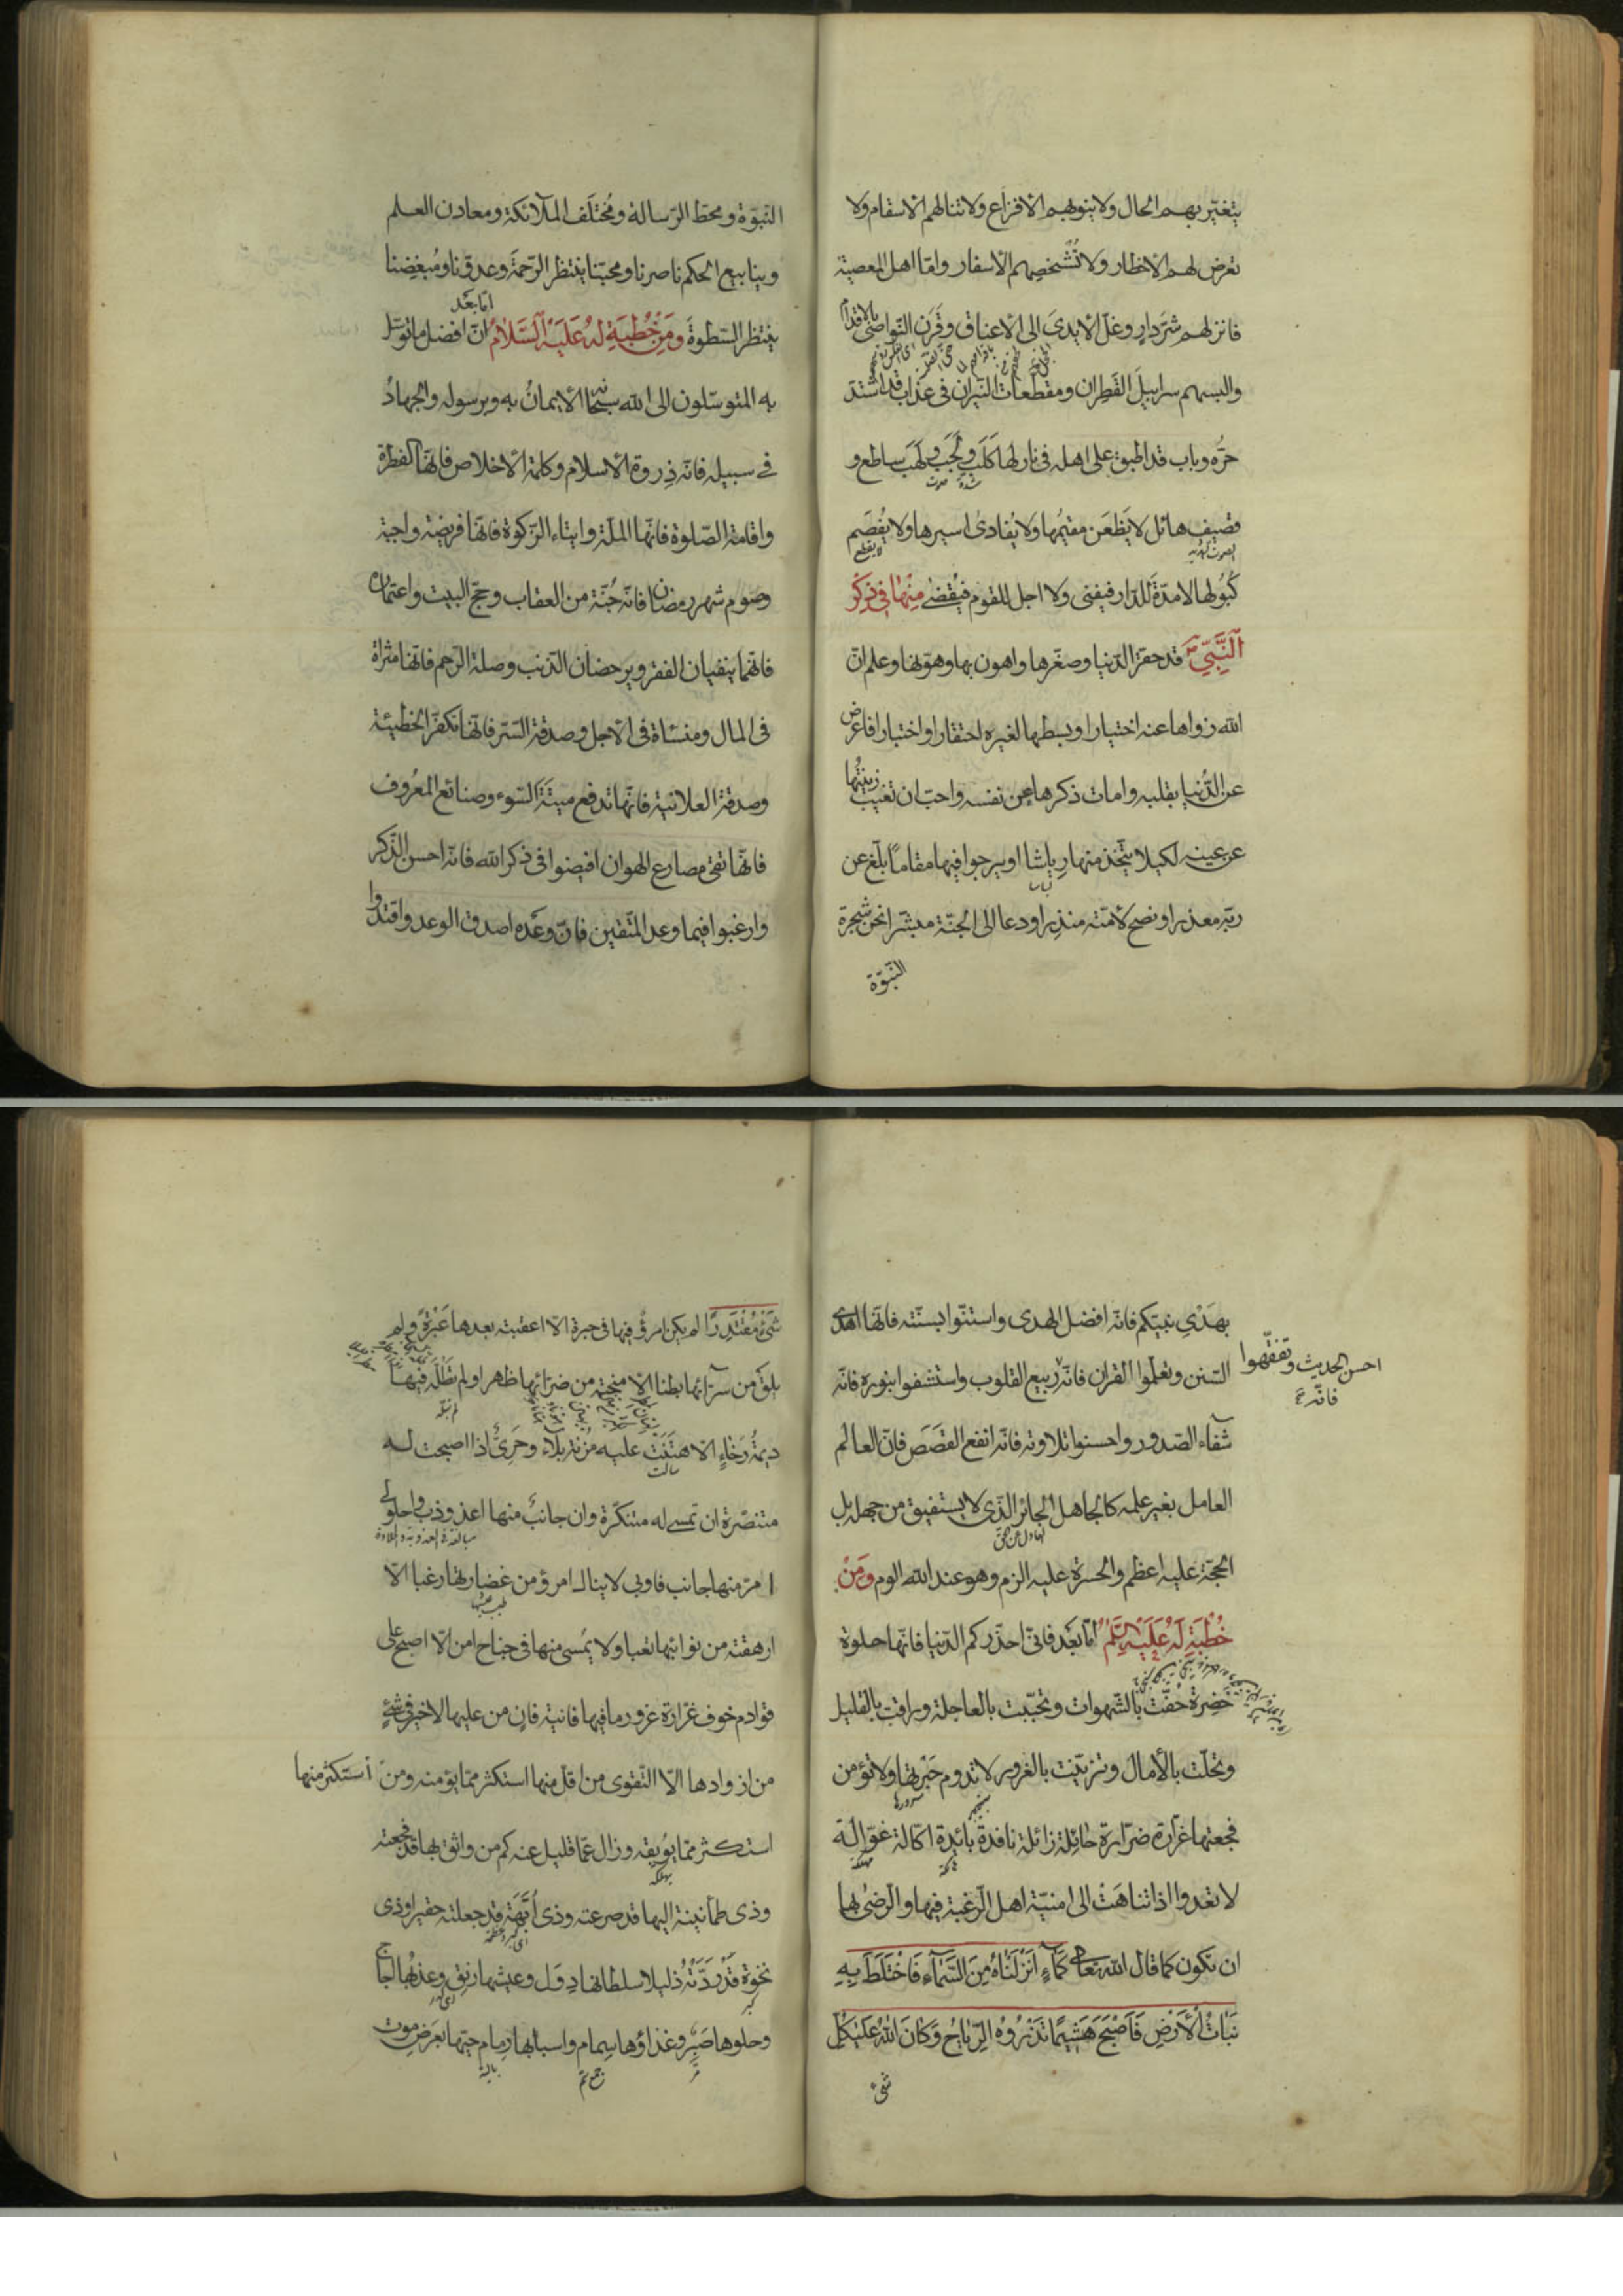 يتغيّر بهم الحال ولا ينوبهم الافزاع ولا تنالهم الاسقام ولا
تعرض لهم الاخطار ولا تُشخصهم الاسفار وامّا اهل المعصية
فانزلهم شرَّ دارٍ وغلّ الايدىَ الى الاعناق وقَرَن النّواصىَ بالاقدام
والبسهم سرابيلَ القَطِران ومقطّعات النّيران فى عذاب قد اشتدّ
حرّه وباب قد اطبق على اهله فى نار لها كَلَبٌ ولَجَبٌ ولَهَبٌ ساطع و
شدة
صوت
قصيف هائل لا يَظعَن مقيمُها ولا يُفادىٰ اسيرها ولا يُفصَم
لا يقطع
كُبُولها لا مدّةَ للدّار فيفنى ولا اجل للقوم فيُقضٰى مِنْها فى ذِكْرِ
اَلنَّبِيِّ قد حقّر الدّنيا وصغّرها واهون بها وهوّنها وعلم انّ
الله زواها عنه اختيارا وبسطها لغيره احتقارا واختبارا فاعرض
عن الدّنيا بقلبه وامات ذكرها عن نفسه واحبّ ان تغيب زينتُها
عن عينه لكيلا يتّخذ منها رِياشا او يرجوا فيها مقامًا بلّغ عن
ربّه معذرا ونصح لامّته منذِرا ودعا الى الجنّة مبشّرا نحن شجرة
النّبوّة
النّبوّة ومحطّ الرّسالة ومُختلَف الملآئكة ومعادن العلم
وينابيع الحكم ناصرنا ومحبّنا ينتظر الرّحمَة وعدوّنا ومُبغِضنا
امّا بعد
ينتظر السّطوة وَمِنْ خُطْبَةٍ لَهُ عَلَيْهِ اَلسَّلاٰمُ انّ افضل ما توسّل
به المتوسّلون الى الله سبحانه الايمانُ به وبرسوله والجهادُ
فى سبيله فانّه ذِروة الاسلام وكلمة الاخلاص فانّها الفطرة
واقامة الصّلوة فانّها الملّة وايتاء الزّكوة فانّها فريضة واجبة
وصوم شهر رمضان فانّه جُنّة من العقاب وحجّ البيت واعتماره
فانّهما ينفيان الفقر ويرحضان الذّنب وصلة الرّحم فانّها مثراة
فى المال ومنسأة فى الاجل وصدقة السّرّ فانّها تكفّر الخطيئة
وصدقة العلانية فانّها تدفع ميتَةَ السّوء وصنائع المعُروف
فانّها تقى مصارع الهوان افيضوا فى ذكر الله فانّه احسن الذّكر
وارغبوا فيما وعد المتّقين فانّ وعَده اصدق الوعد واقتدوا
بهَدْىِ نبيّكم فانّه افضل الهدى واستنّوا بسنّته فانّها اهدى
السّنن وتعلّموا القران فانّه ربيع القلوب واستشفوا بنوره فانّه
احسن الحديث وتفقّهوا
فانّه
شفاء الصّدور واحسنوا تلاوته فانّه انفع القَصَص فانّ العالم
العامل بغير علمه كالجاهل الجائر الّذى لا يستفيق من جهله بل
الحجّة عليه اعظم والحسرة عليه الزم وهو عند الله الوم وَمِنْ
خُطْبَةٍ لَهُ عَلَيْهِ السَّلٰمُ امّا بعَد فانّى احذّركم الدّنيا فانّها حلوة
خَضِرة حُفّت بالشّهوات وتحبّبت بالعاجلة وراقت بالقليل
وتحلّت بالأمال وتزيّنت بالغرور لا تدوم حَبْرتها ولا تؤمن
سرورها
فجعتها غرّارة ضرّارة حائلة زائلة نافدة بائدة اكّالة غوّالة
لا تعدوا اذا تناهَتْ الى امنيّة اهل الرّغبة فيها والرّضىٰ بها
ان تكون كما قال الله تعالى كَمآءٍ اَنْزَلْنٰاهُ مِنَ السَّمآءِ فَاخْتَلَطَ بِهِ
نَبٰاتُ الْاَرْضِ فَاَصْبَحَ هَشيمًا تَذْرُوهُ الرِّيٰاحُ وَكٰانَ اللهُ عَلىٰ كُلِّ
شىء
شَىْءٍ مُقْتَدِرًا لم يكن امرؤ فيها فى حبرة الّا اعقبته بعدها عَبْرَةً ولم
يلقَ من سرّآئها بطنا الّا منحته من ضرّائها ظهرا ولم تَطُلَّه فيها
ديمَةُ رَخاءٍ الّا هتَنَتْ عليه مُزنة بلاء وحَرِىٌّ اذا اصبحت له
سالت
منتصّرة ان تمسى له متنكّرة وان جانبٌ منها اعذوذب واحلولى
امرّ منها جانب فاوبى لا ينال امرؤ من غضارتها رغبا الّا
ارهقته من نوائبها تعبا ولا يُمسى منها فى جناح امن الّا اصبح على
قوادم خوف غرّارة غرور ما فيها فانية فانٍ من عليها لا خير فى شىءٍ
من ازوادها الّا التّقوى من اقلّ منها استكثر ممّا يؤمنه ومن استكثر منها
استكثر ممّا يُوبقه وزال عمّا قليل عنه كم من واثق بها قد فجعته
يهلكه
وذى طمأنينة اليها قد صرعته وذى اُبَّهَةٍ قد جعلته حقيرا وذى
نخوة قَدْ رَدَّتْهُ ذليلا سلطانها دِوَل وعيشها رنِق وعذبُها اُجاج
كبر
وحلوها صَبِر وغذاؤها سِمام واسبابها رِمام حيّها بعَرَضِ موت
مرّ
جمع سمّ
بالية